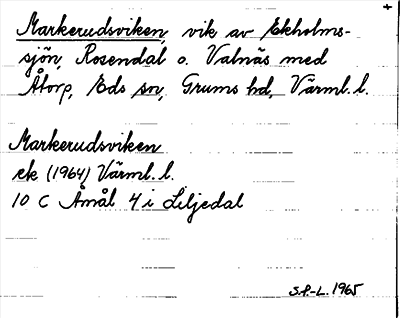 Markerudsviken, vik av Ekholms-
sjön, Rosendal o. Valnäs med
Åtorp, Eds sn, Grums hd, Värml. l.
Markerudsviken
ek (1964) Värml. l.
10 C Åmål 4 i Liljedal
S.F.-L. 1965